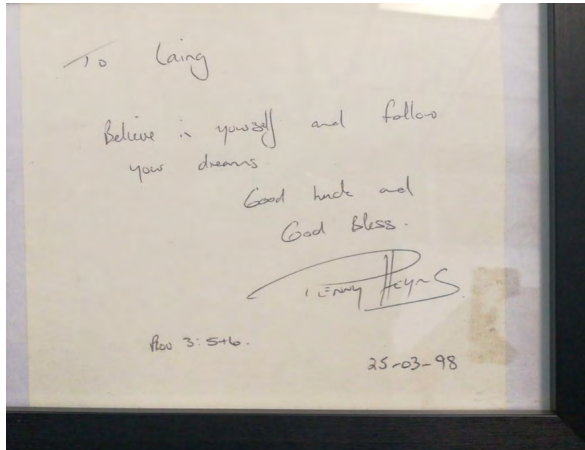 To Laing
Believe in yourself and follow
your dreams.
Good luck and
God Bless.
Penny Heyns
Prov 3:5+6.
25-03-98